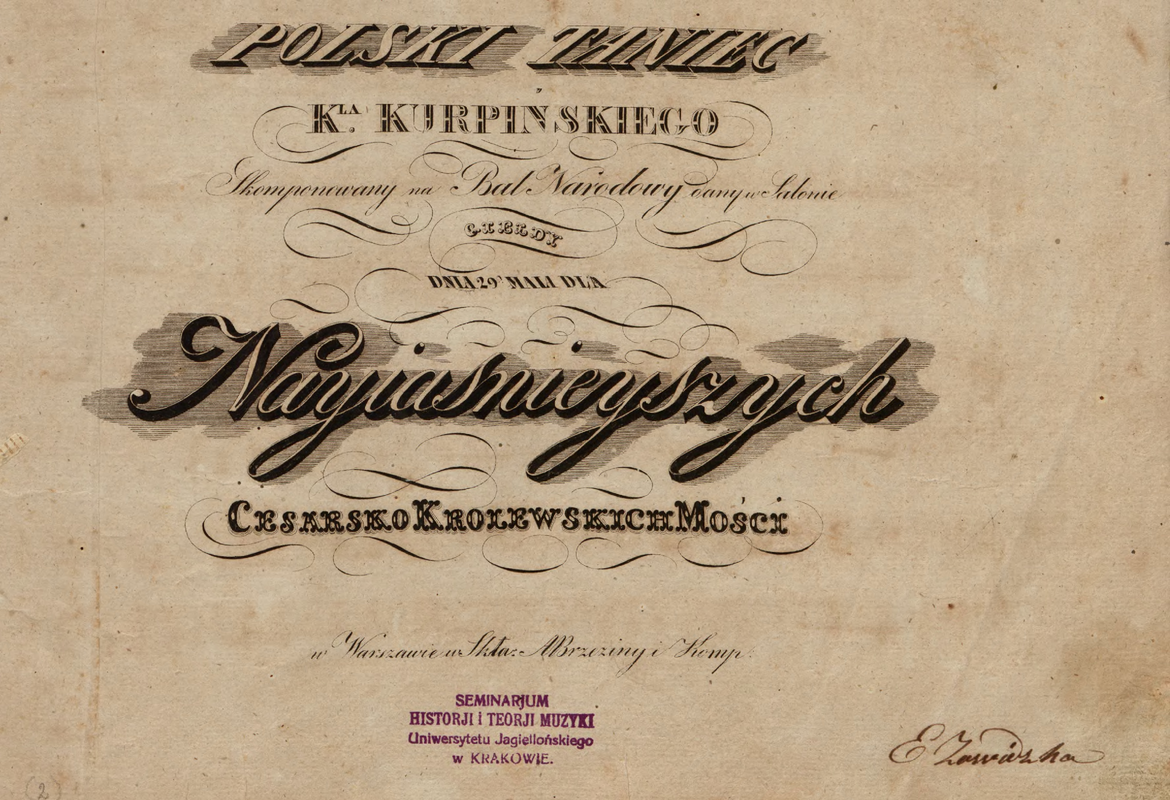 POLSKI TANIEC
KLA. KURPIŃSKIEGO
Skomponowany na Bal Narodowy dany w Salonie
GIEŁDY
DNIA 29º MAIA DLA
Nayiaśnieyszych
CESARSKO KROLEWSKICH MOŚCI
w Warszawie w Skła: A Brzeziny i Komp.
SEMINARJUM
HISTORJI i TEORJI MUZYKI
Uniwersytetu Jagiellońskiego
w KRAKOWIE.
E Zawadzka
(2)